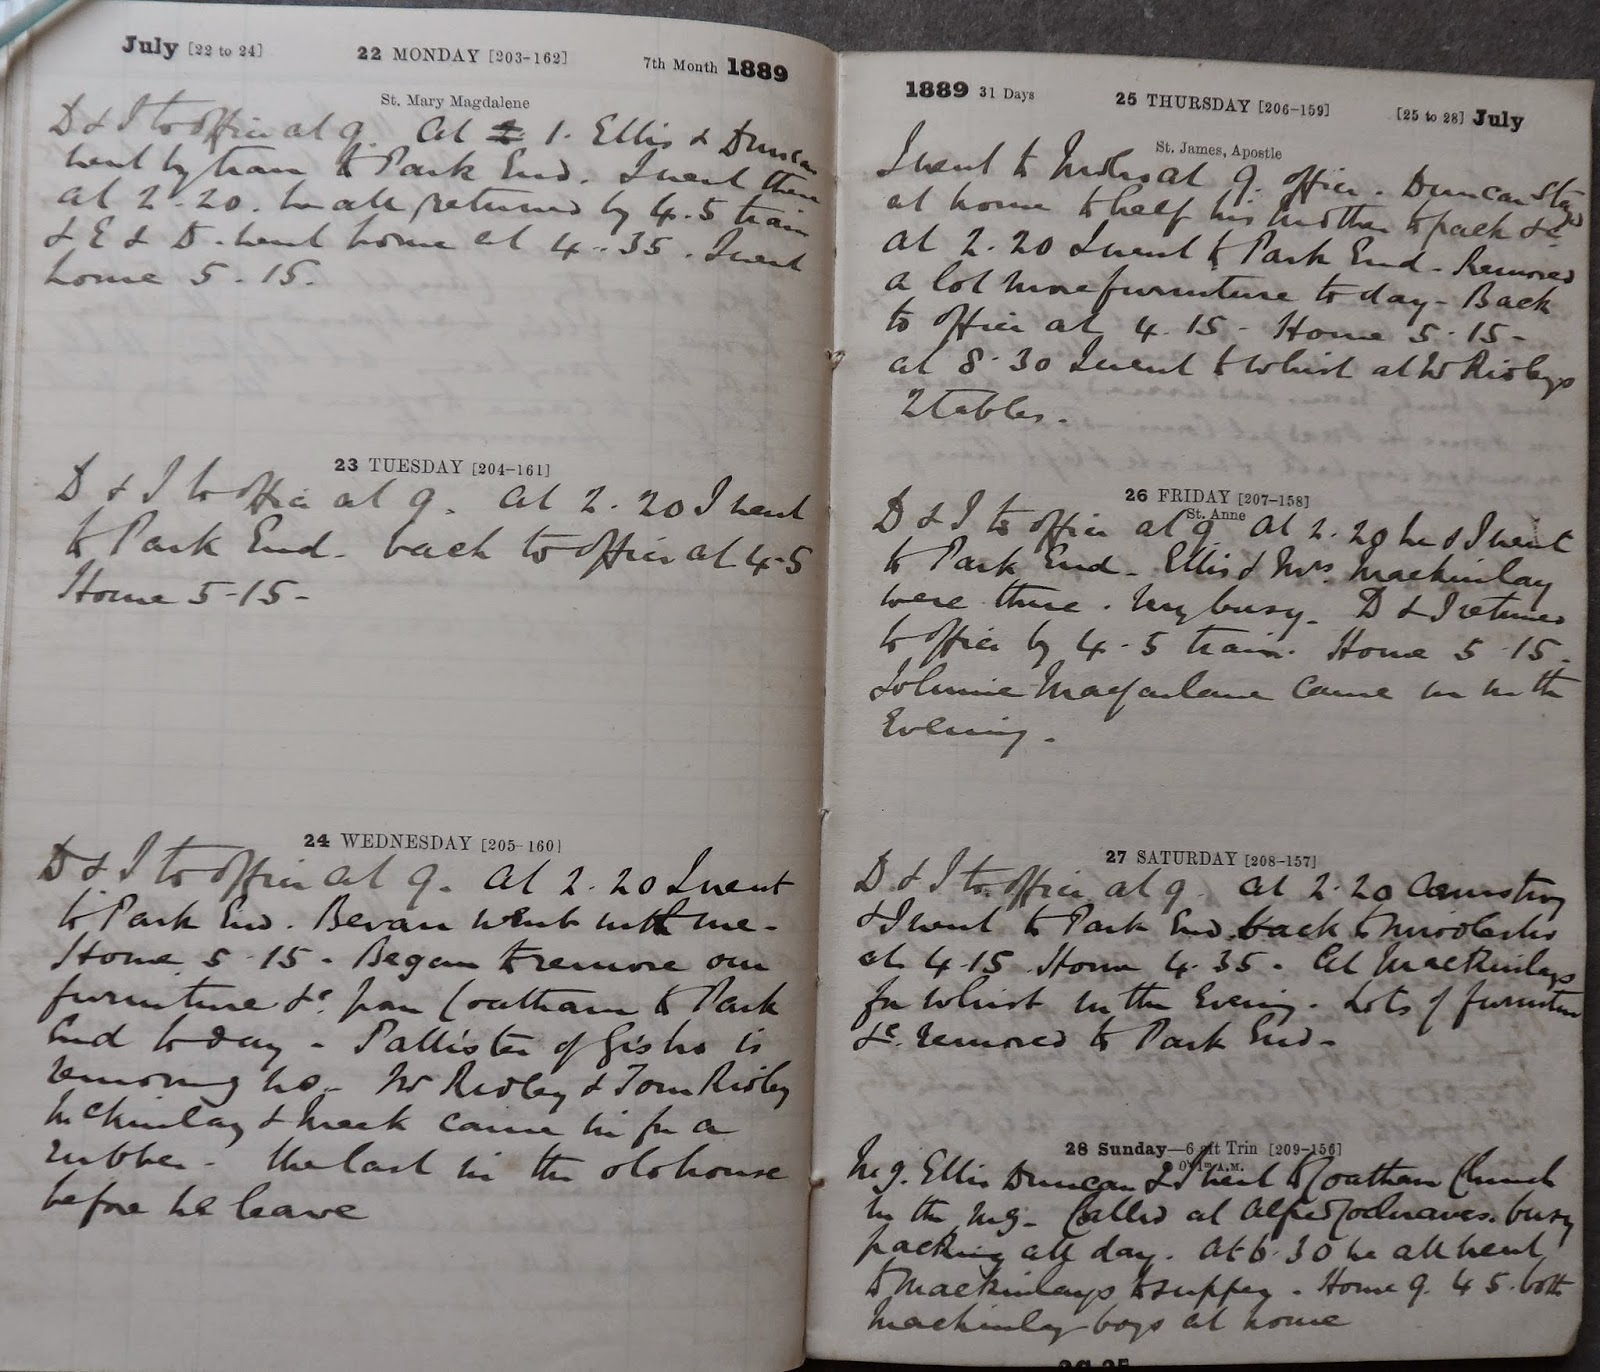 July [22 to 24] 22 MONDAY [203-162] 7th Month 1889
St. Mary Magdalene
D & I to office at 9. At 1. Ellis & Duncan
went by train to Park End. I went there
at 2.20. We all returned by 4.5 train
& E & D. went home at 4.35. I went
home 5.15.
23 TUESDAY [204-161]
D & I to office at 9. At 2.20 I went
to Park End. back to office at 4-5
Home 5-15-
24 WEDNESDAY [205-160]
D & I to office at 9. At 2.20 I went
to Park End. Bevan went with me-
Home 5.15 - Began to remove our
furniture &c. from Coatham to Park
End today - Pallister of Gisbro is
removing us. W Ridley & Tom Ridley
McKinlay & Meek came in for a
rubber - the last in the old house
before we leave
1889 31 Days 25 THURSDAY [206-159] [25 to 28] July
St. James, Apostle
I went to Mdbro at 9. office. Duncan stayed
at home to help his mother to pack &c
At 2.20 I went to Park End - Removed
a lot more furniture to day - Back
to office at 4.15 - Home 5.15-
at 8.30 I went to whist at W Ridleys
2 tables.
26 FRIDAY [207-158]
St. Anne
D & I to office at 9. At 2.20 he & I went
to Park End - Ellis & Mrs. Mackinlay
were there. Very busy. D & I returned
to office by 4-5 train. Home 5.15.
Johnnie Macfarlane came in in the
Evening.
27 SATURDAY [208-157]
D. & I to office at 9. At 2.20 Armstrong
& I went to Park End back to
at 4.15 Home 4.35 - At Mackinlays
for whist in the Evening. Lots of furniture
&c. removed to Park End-
28 Sunday—6 aft Trin [209-156]
A.M.
Ellis Duncan & I went to Coatham Church
in the Mg- Called at Alfred busy
packing all day. At 6.30 we all went
to Mackinlays to supper. Home 9.45. both
Mackinlay boys at home